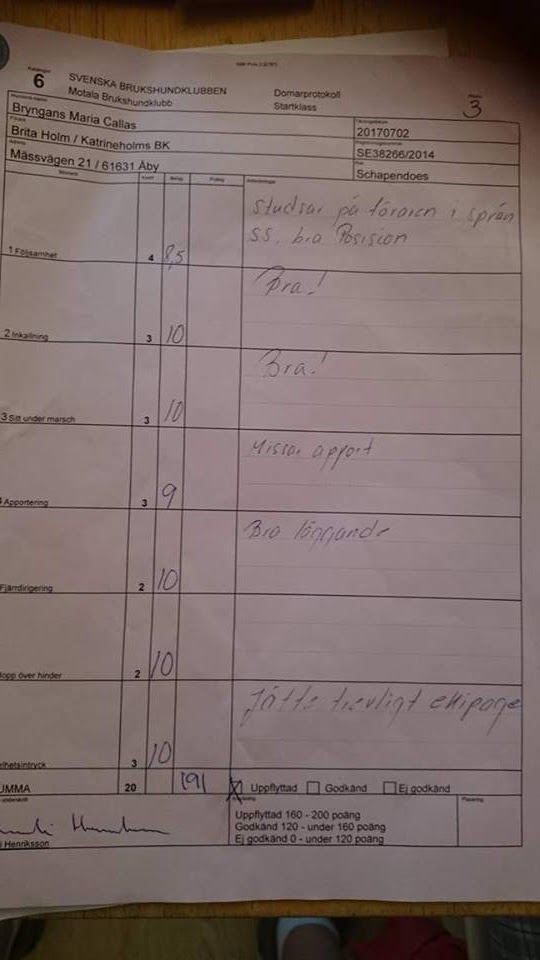 Katalognr
6
SVENSKA BRUKSHUNDKLUBBEN
Motala Brukshundklubb
Domarprotokoll
Startklass
3
Hundens namn
Bryngans Maria Callas
Tävlingsdatum
20170702
Förare
Brita Holm / Katrineholms BK
Registreringsnummer
SE38266/2014
Adress
Mässvägen 21 / 61631 Åby
Ras
Schapendoes
Moment
Koeff
Betyg
Poäng
Anteckningar
1 Följsamhet
4
8,5
Studsar på föraren i språn
SS. bra Position
2 Inkallning
3
10
Bra!
3 Sitt under marsch
3
10
Bra!
Apportering
3
9
Missar apport
Fjärrdirigering
2
10
Bra läggande
opp över hinder
2
10
elhetsintryck
3
10
Jätte trevligt ekipage
UMMA
20
191
X Uppflyttad
Godkänd
Ej godkänd
underskrift
i Henriksson
Uppflyttad 160 - 200 poäng
Godkänd 120 - under 160 poäng
Ej godkänd 0 - under 120 poäng
Placering